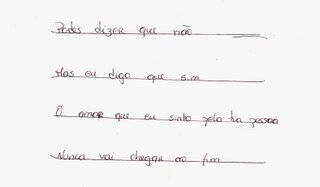 Podes dizer que não
Mas eu digo que sim
O amor que eu sinto pela tua pessoa
Nunca vai chegar ao fim